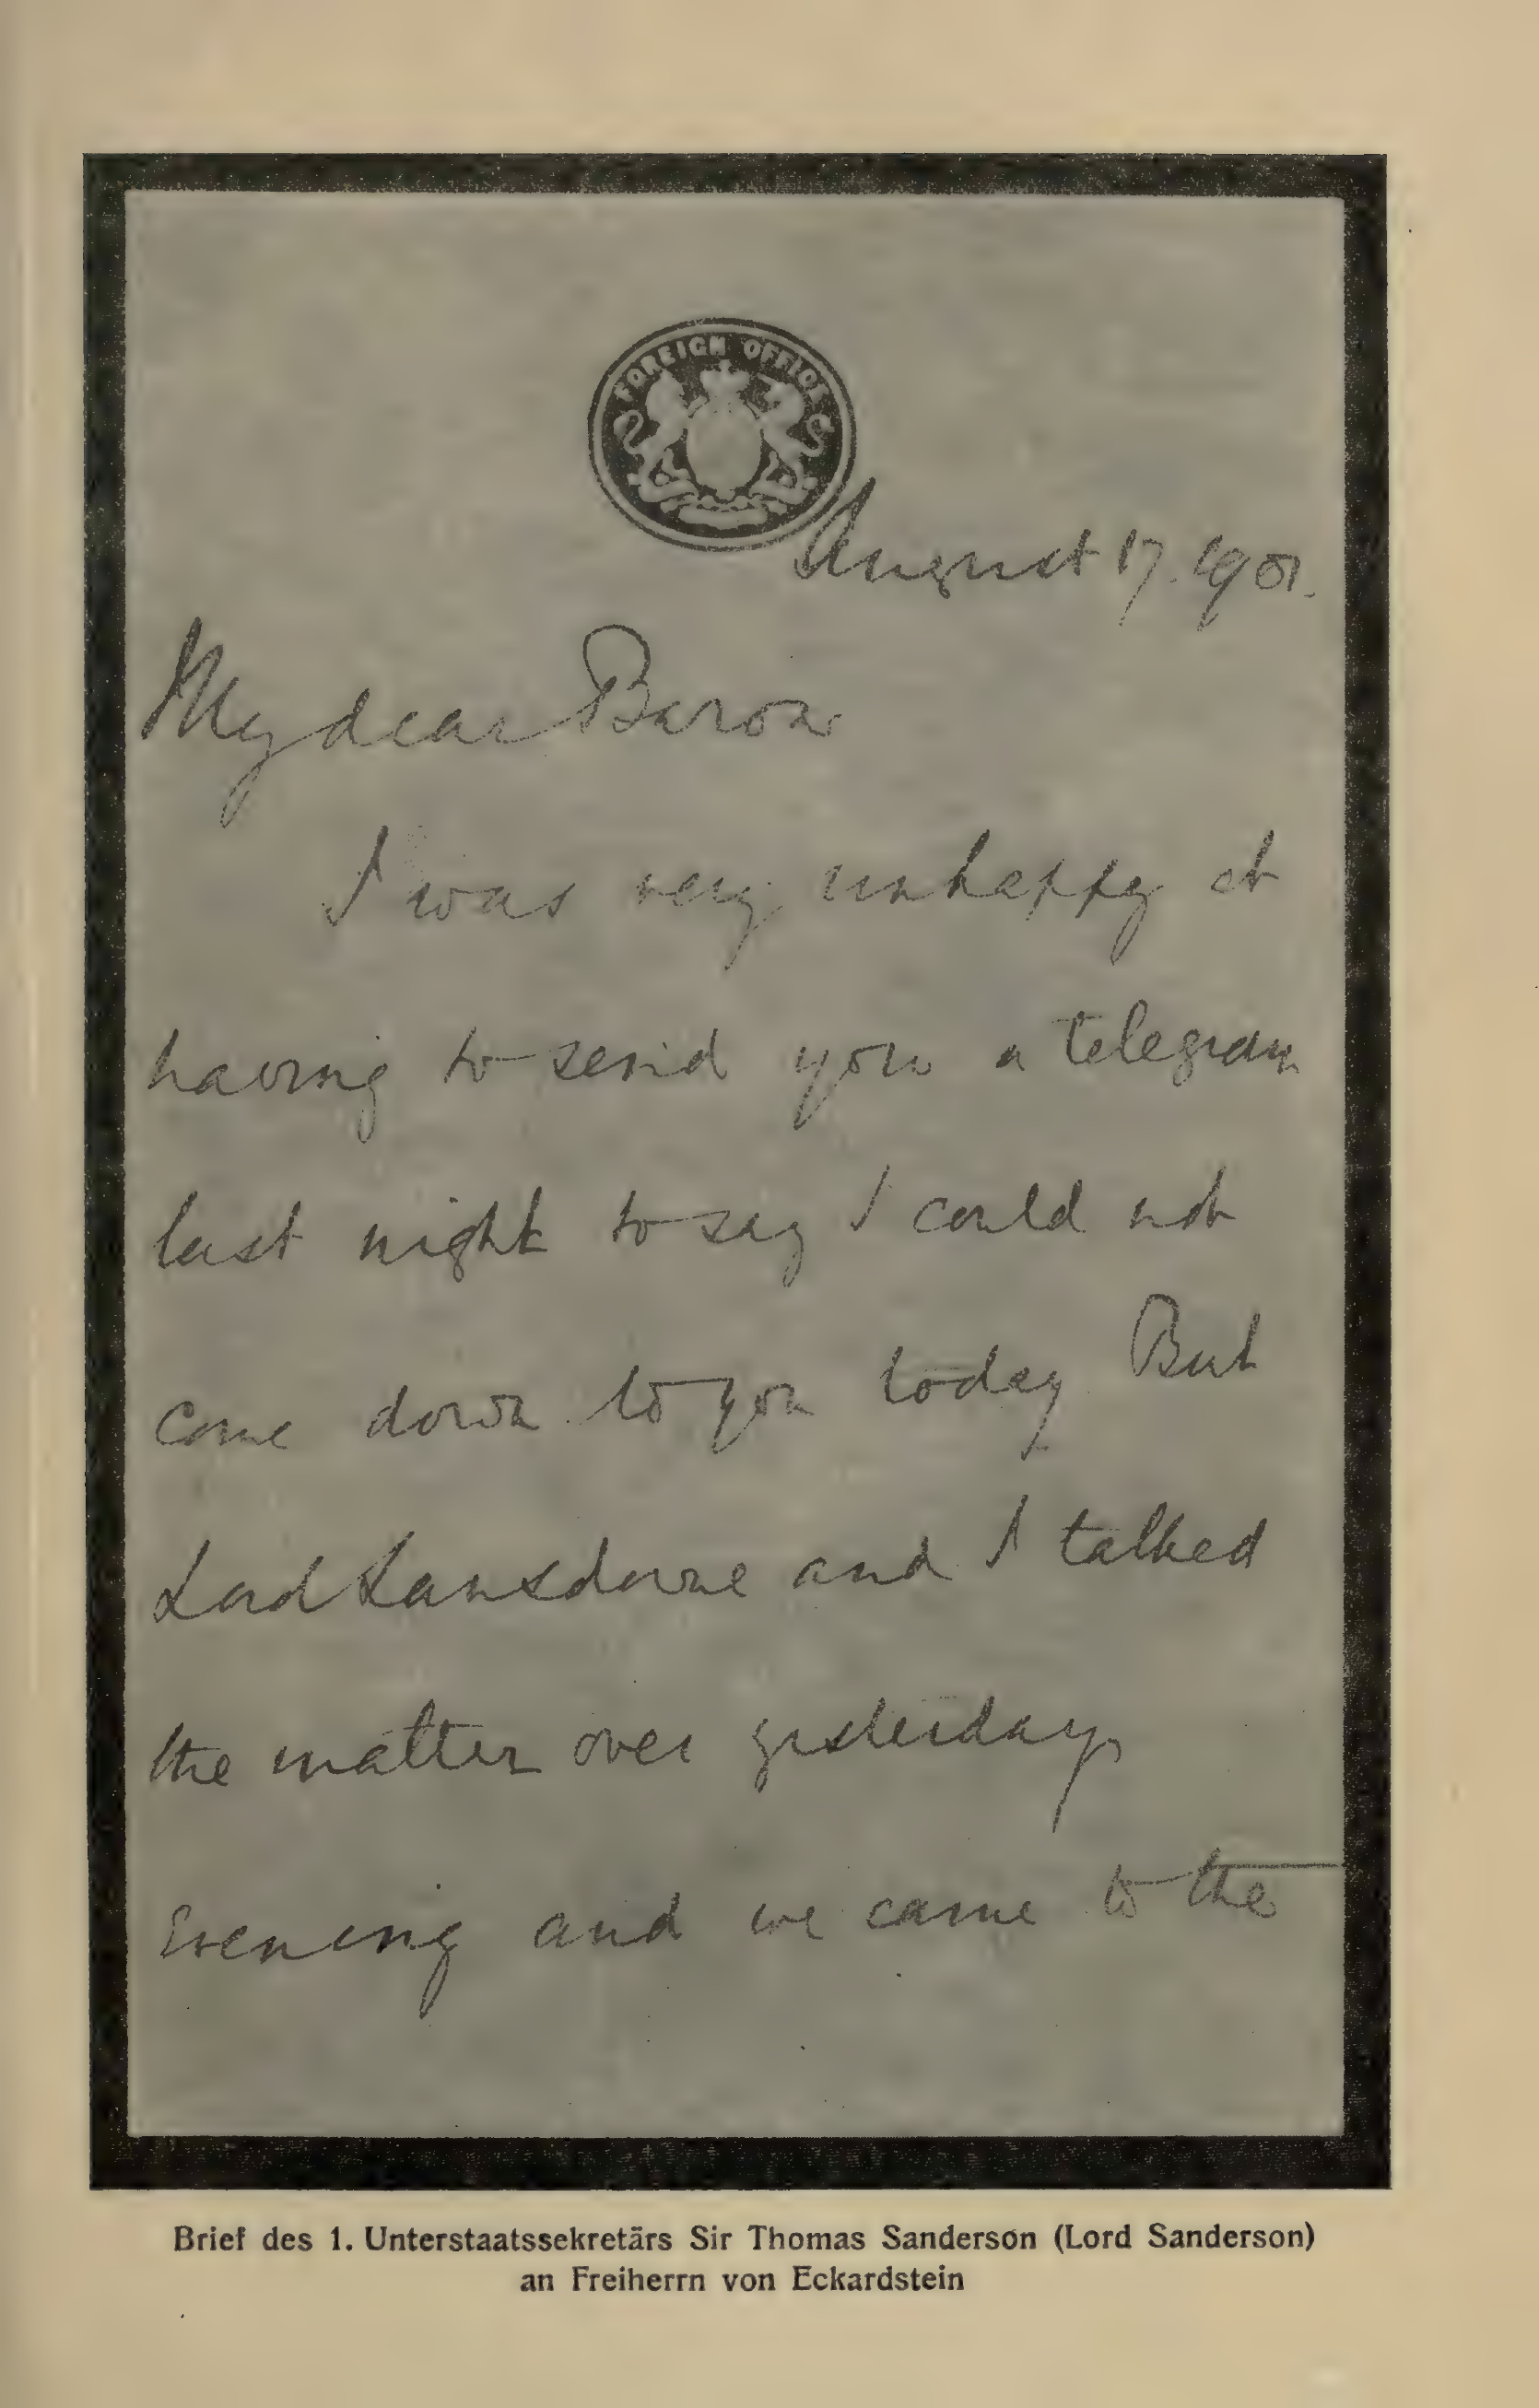 FOREIGN OFFICE
August 17. 1901.
My dear Baron
I was very unhappy at
having to send you a telegram
last night to say I could not
come down to you today. But
Lord Lansdowne and I talked
the matter over yesterday
evening and we came to the
Brief des 1. Unterstaatssekretärs Sir Thomas Sanderson (Lord Sanderson)
an Freiherrn von Eckardstein